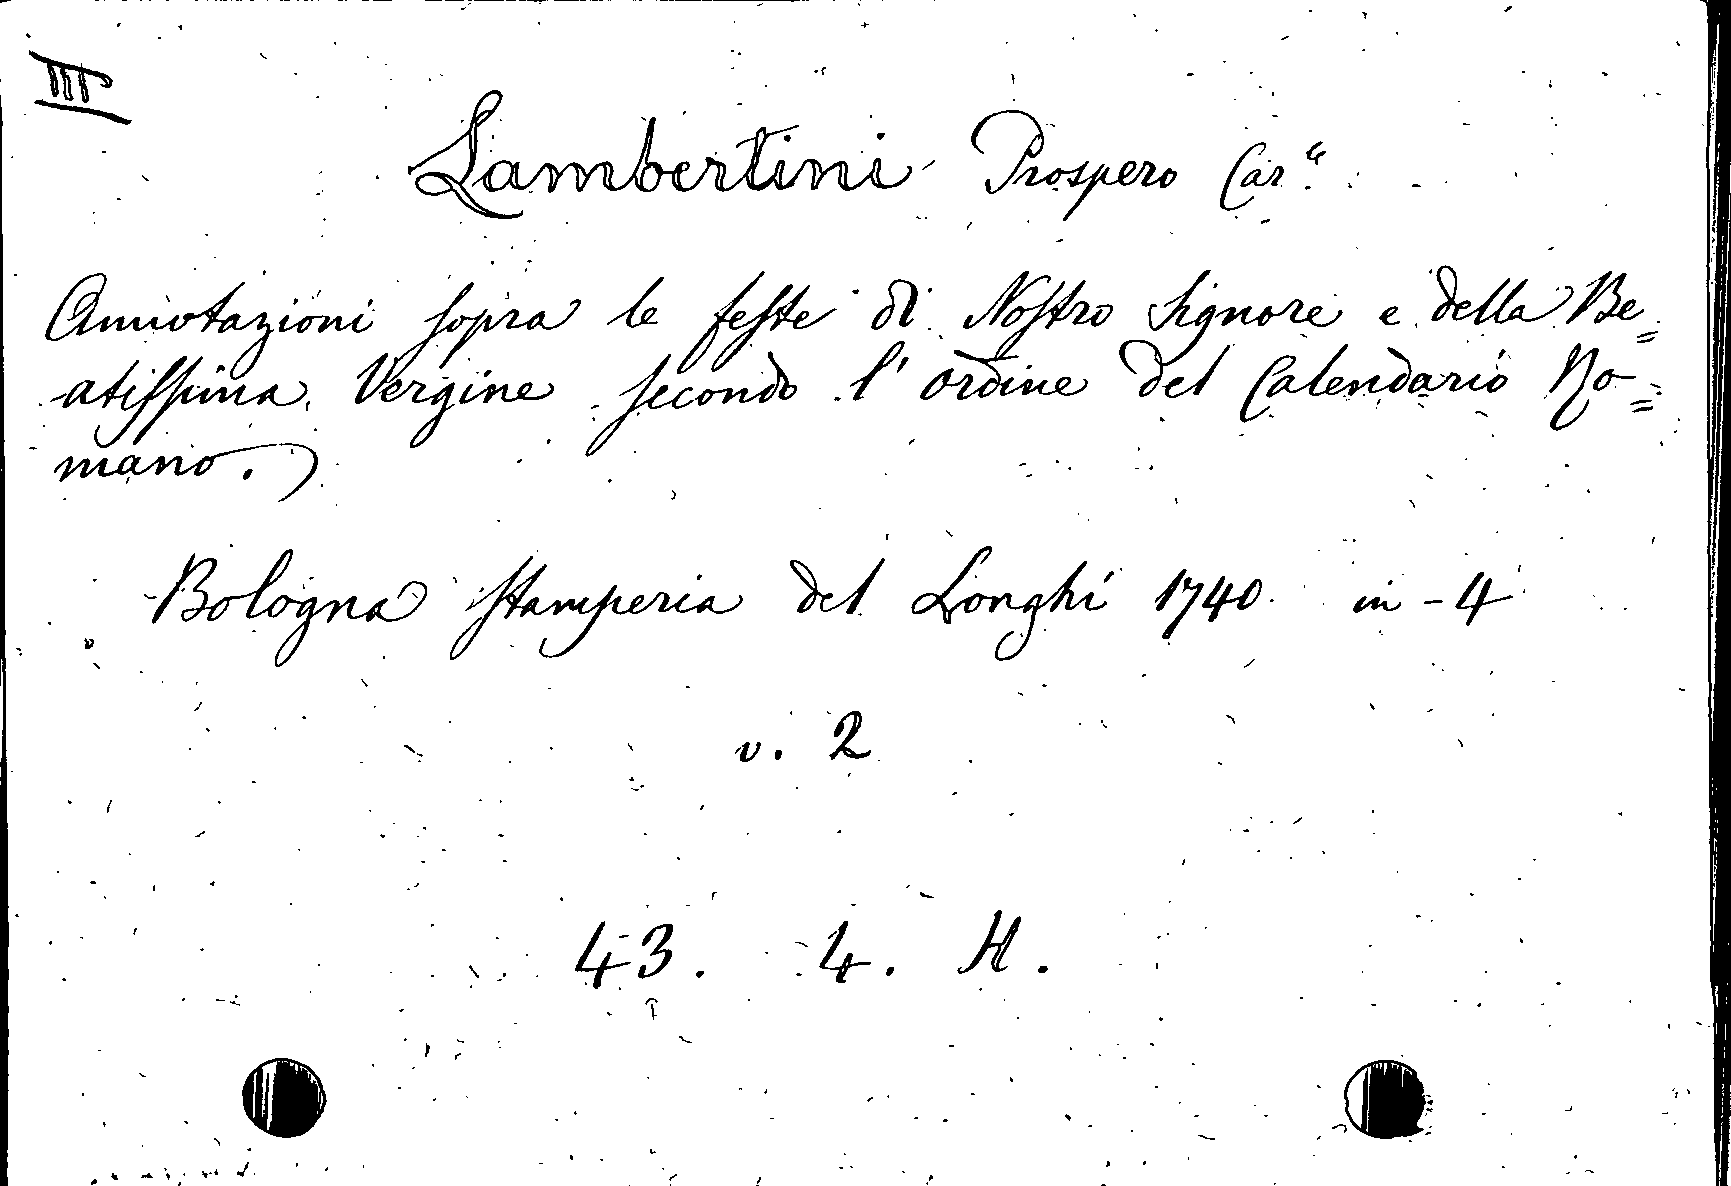 III
Lambertini Prospero Car.le
Annotazioni sopra le feste di Nostro Signore e della Be=
atissima Vergine secondo l'ordine del Calendario Ro=
mano.
Bologna Stamperia del Longhi 1740 in-4
v. 2
43. 4. H.